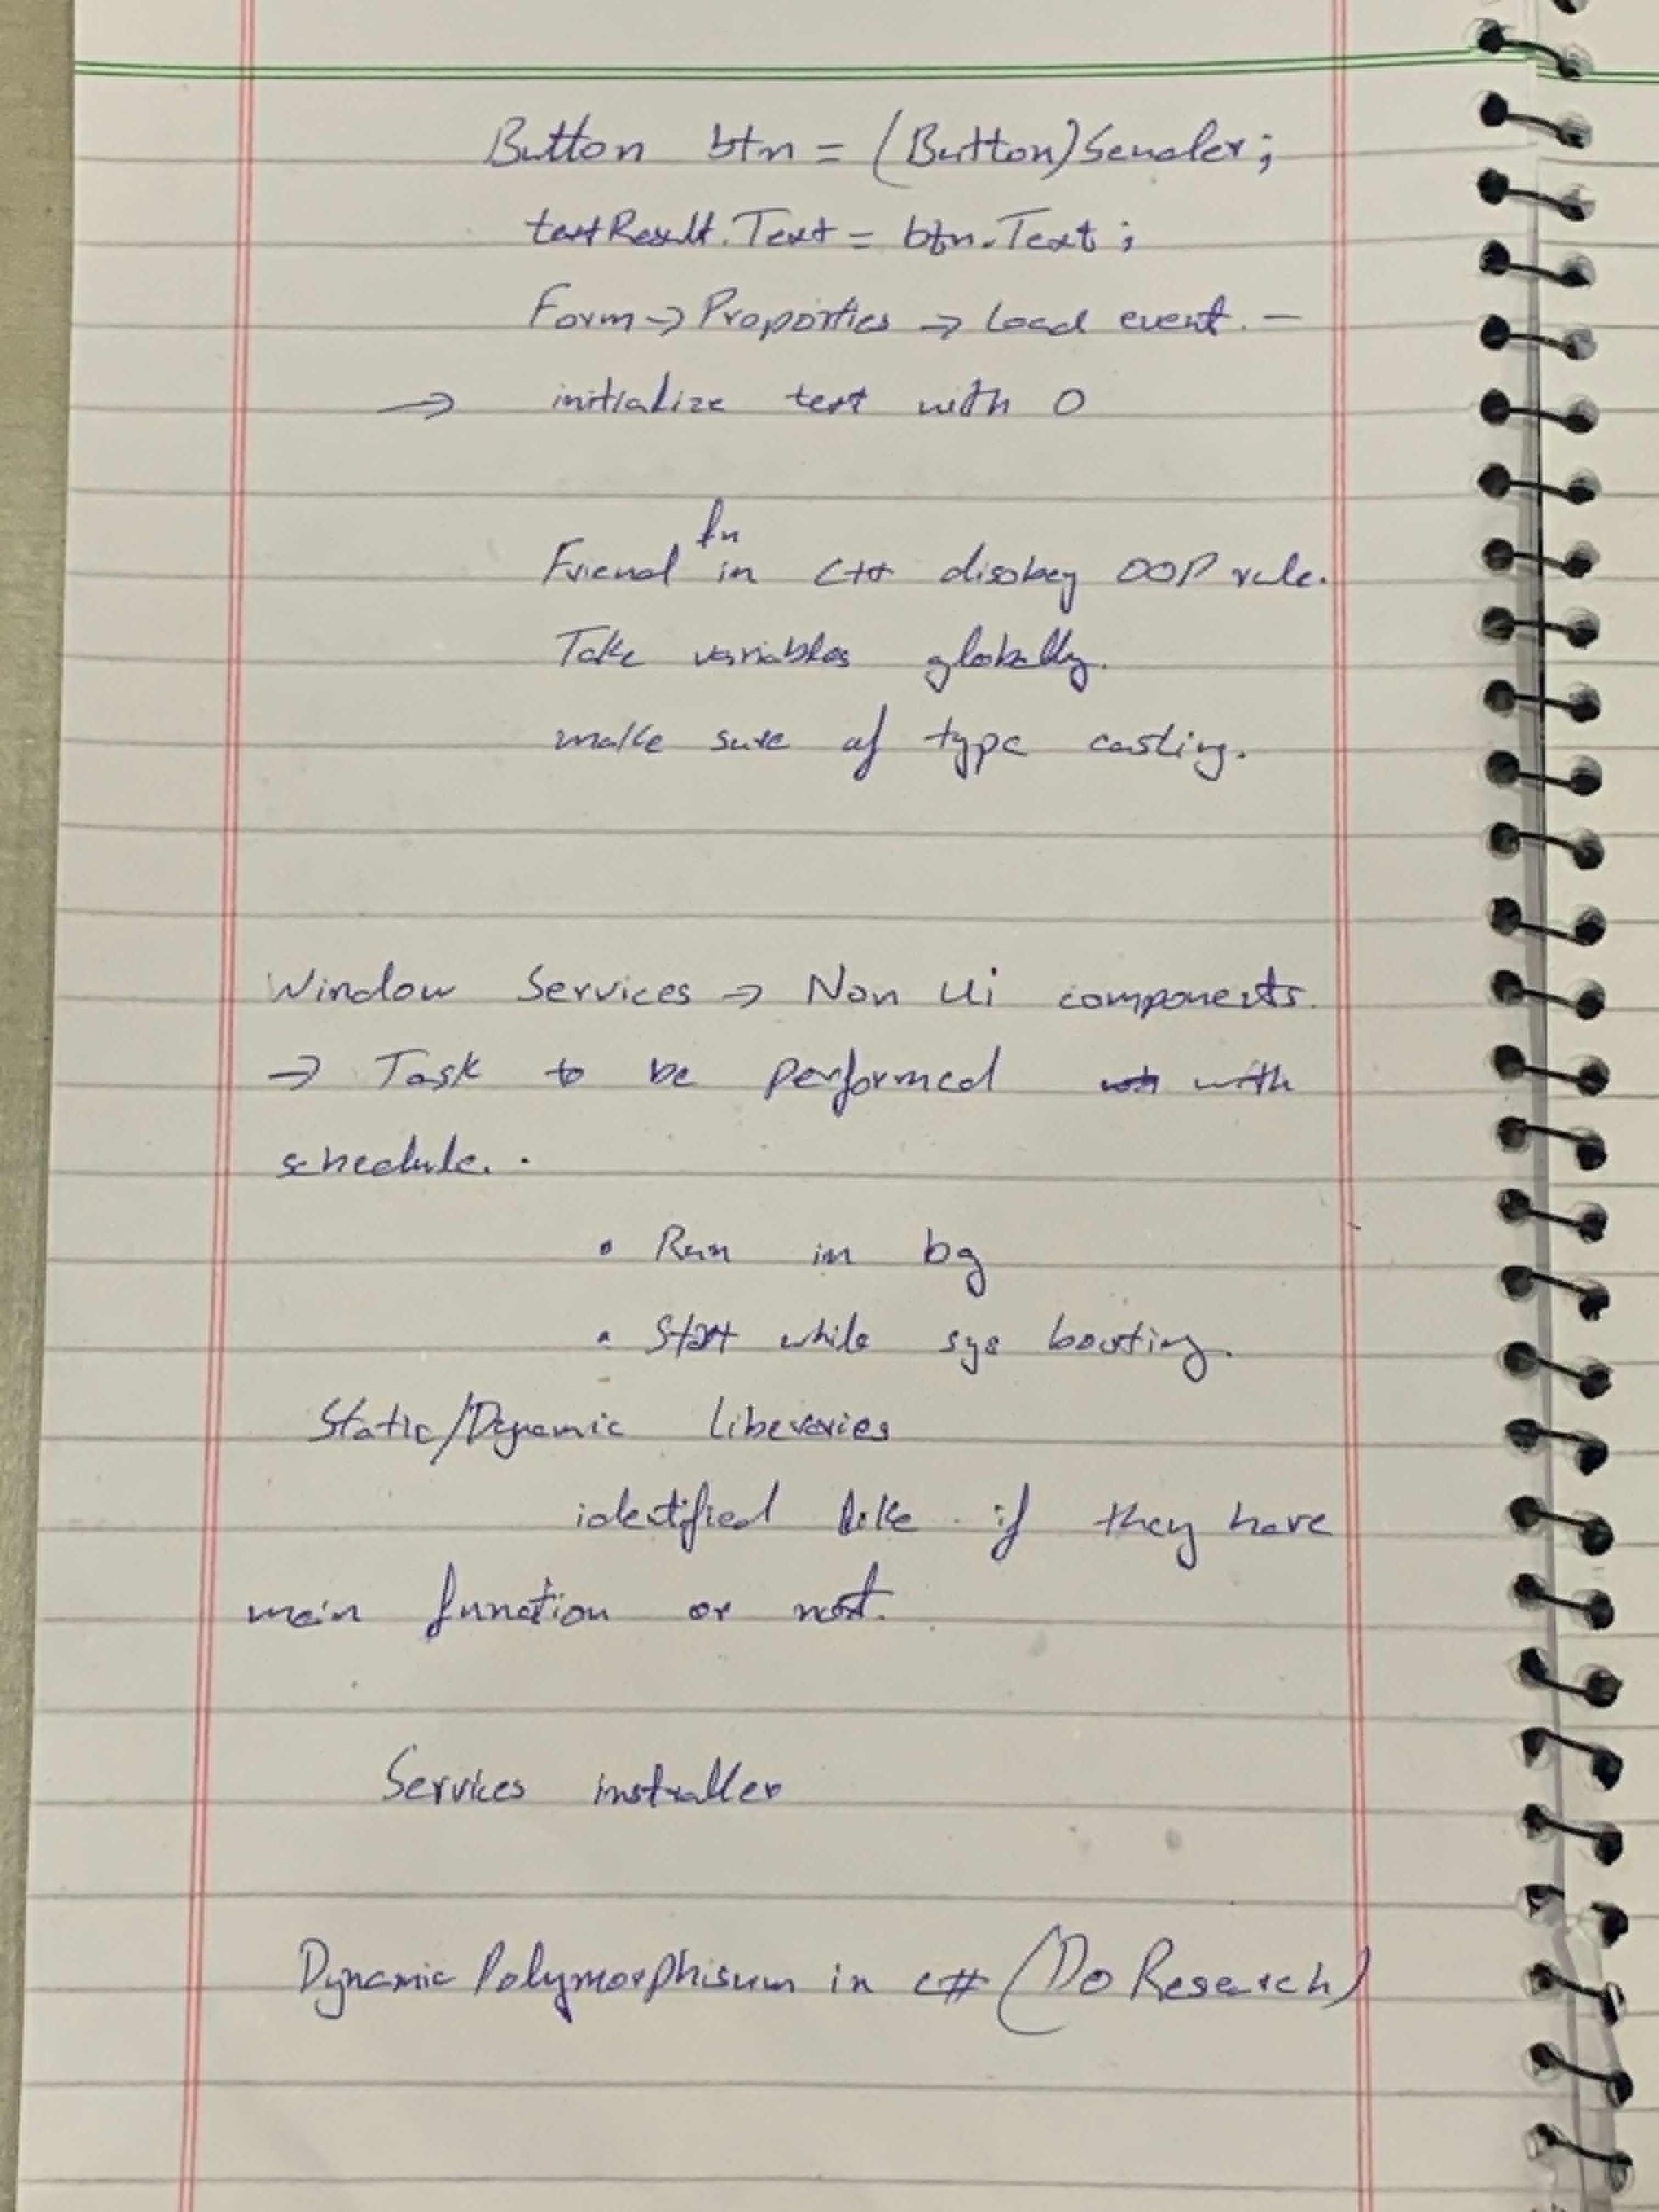 Button btn = (Button)Sender;
textResult.Text = btn.Text;
Form → Proporties → Load event. –
→ initialize text with 0
fn
Friend in C++ disobey OOP rule.
Take variables globally.
make sure of type casting.
Window Services → Non Ui components.
→ Task to be performed with
schedule. .
• Run in bg
• Start while sys booting.
Static/Dynamic Liberaries
identified like if they have
main function or not.
Services installer
Dynamic Polymorphisum in c# (Do Research)